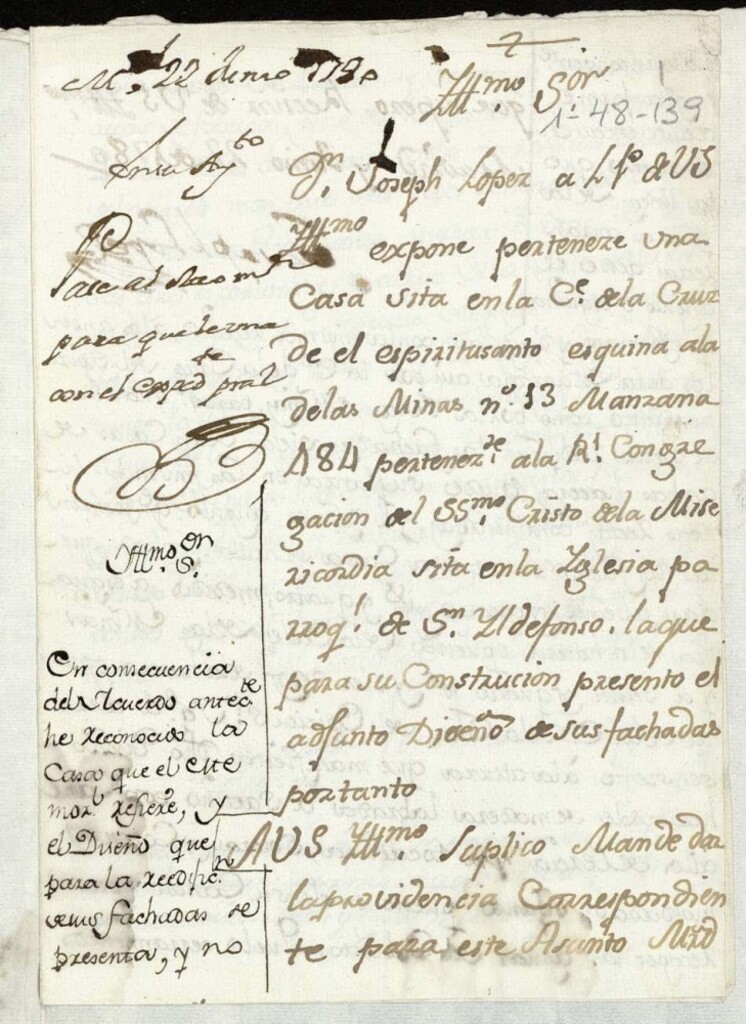 Yllmo Sor
1-48-139
Dn. Joseph Lopez a L P. de VS
Yllmo expone perteneze una
Casa sita en la Ce. de la Cruz
de el espiritusanto esquina ala
de las Minas nº. 13 Manzana
484 pertenezte. ala Rl. Congre
gacion del SSmo. Cristo de la Mise
ricordia sita en la Yglesia pa
rroql. de Sn. Yldefonso. la que
para su Construcion presento el
adjunto Diceño de sus fachadas
portanto
A VS Yllmo. Suplico Mande dar
la providencia Correspondien
te para este Asunto Mrd
Md. 22 de 1780
En su Ayto
Pase al
para que
con el expedte pral
Yllmo. Sr.
En consecuencia
del Acuerdo antecte
he reconocido la
Casa que el este
morl. refiere, y
el Diceño que
para la reedificn
de sus fachadas se
presenta, y no